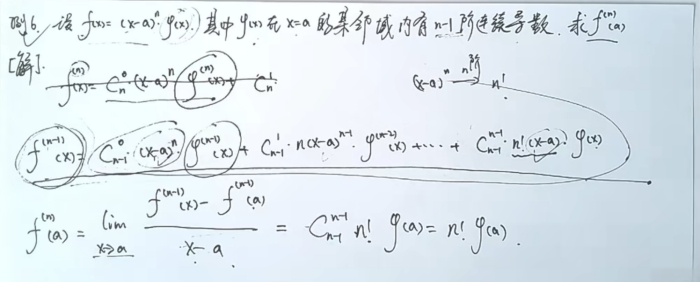 例6. 设 f(x)=(x-a)ⁿ·φ(x). 其中φ(x)在x=a的某邻域内有n-1阶连续导数. 求f⁽ⁿ⁾(a)
[解].
f⁽ⁿ⁾(x)= Cₙ⁰·(x-a)ⁿ φ⁽ⁿ⁾(x)+ Cₙ¹ (x-a)ⁿ n阶→ n!
f⁽ⁿ⁻¹⁾(x)= Cₙ₋₁⁰·(x-a)ⁿ·φ⁽ⁿ⁻¹⁾(x)+ Cₙ₋₁¹·n(x-a)ⁿ⁻¹·φ⁽ⁿ⁻²⁾(x)+⋯+ Cₙ₋₁ⁿ⁻¹·n!(x-a)·φ(x)
f⁽ⁿ⁾(a)= lim x→a (f⁽ⁿ⁻¹⁾(x)-f⁽ⁿ⁻¹⁾(a))/(x-a) = Cₙ₋₁ⁿ⁻¹ n! φ(a)= n! φ(a).